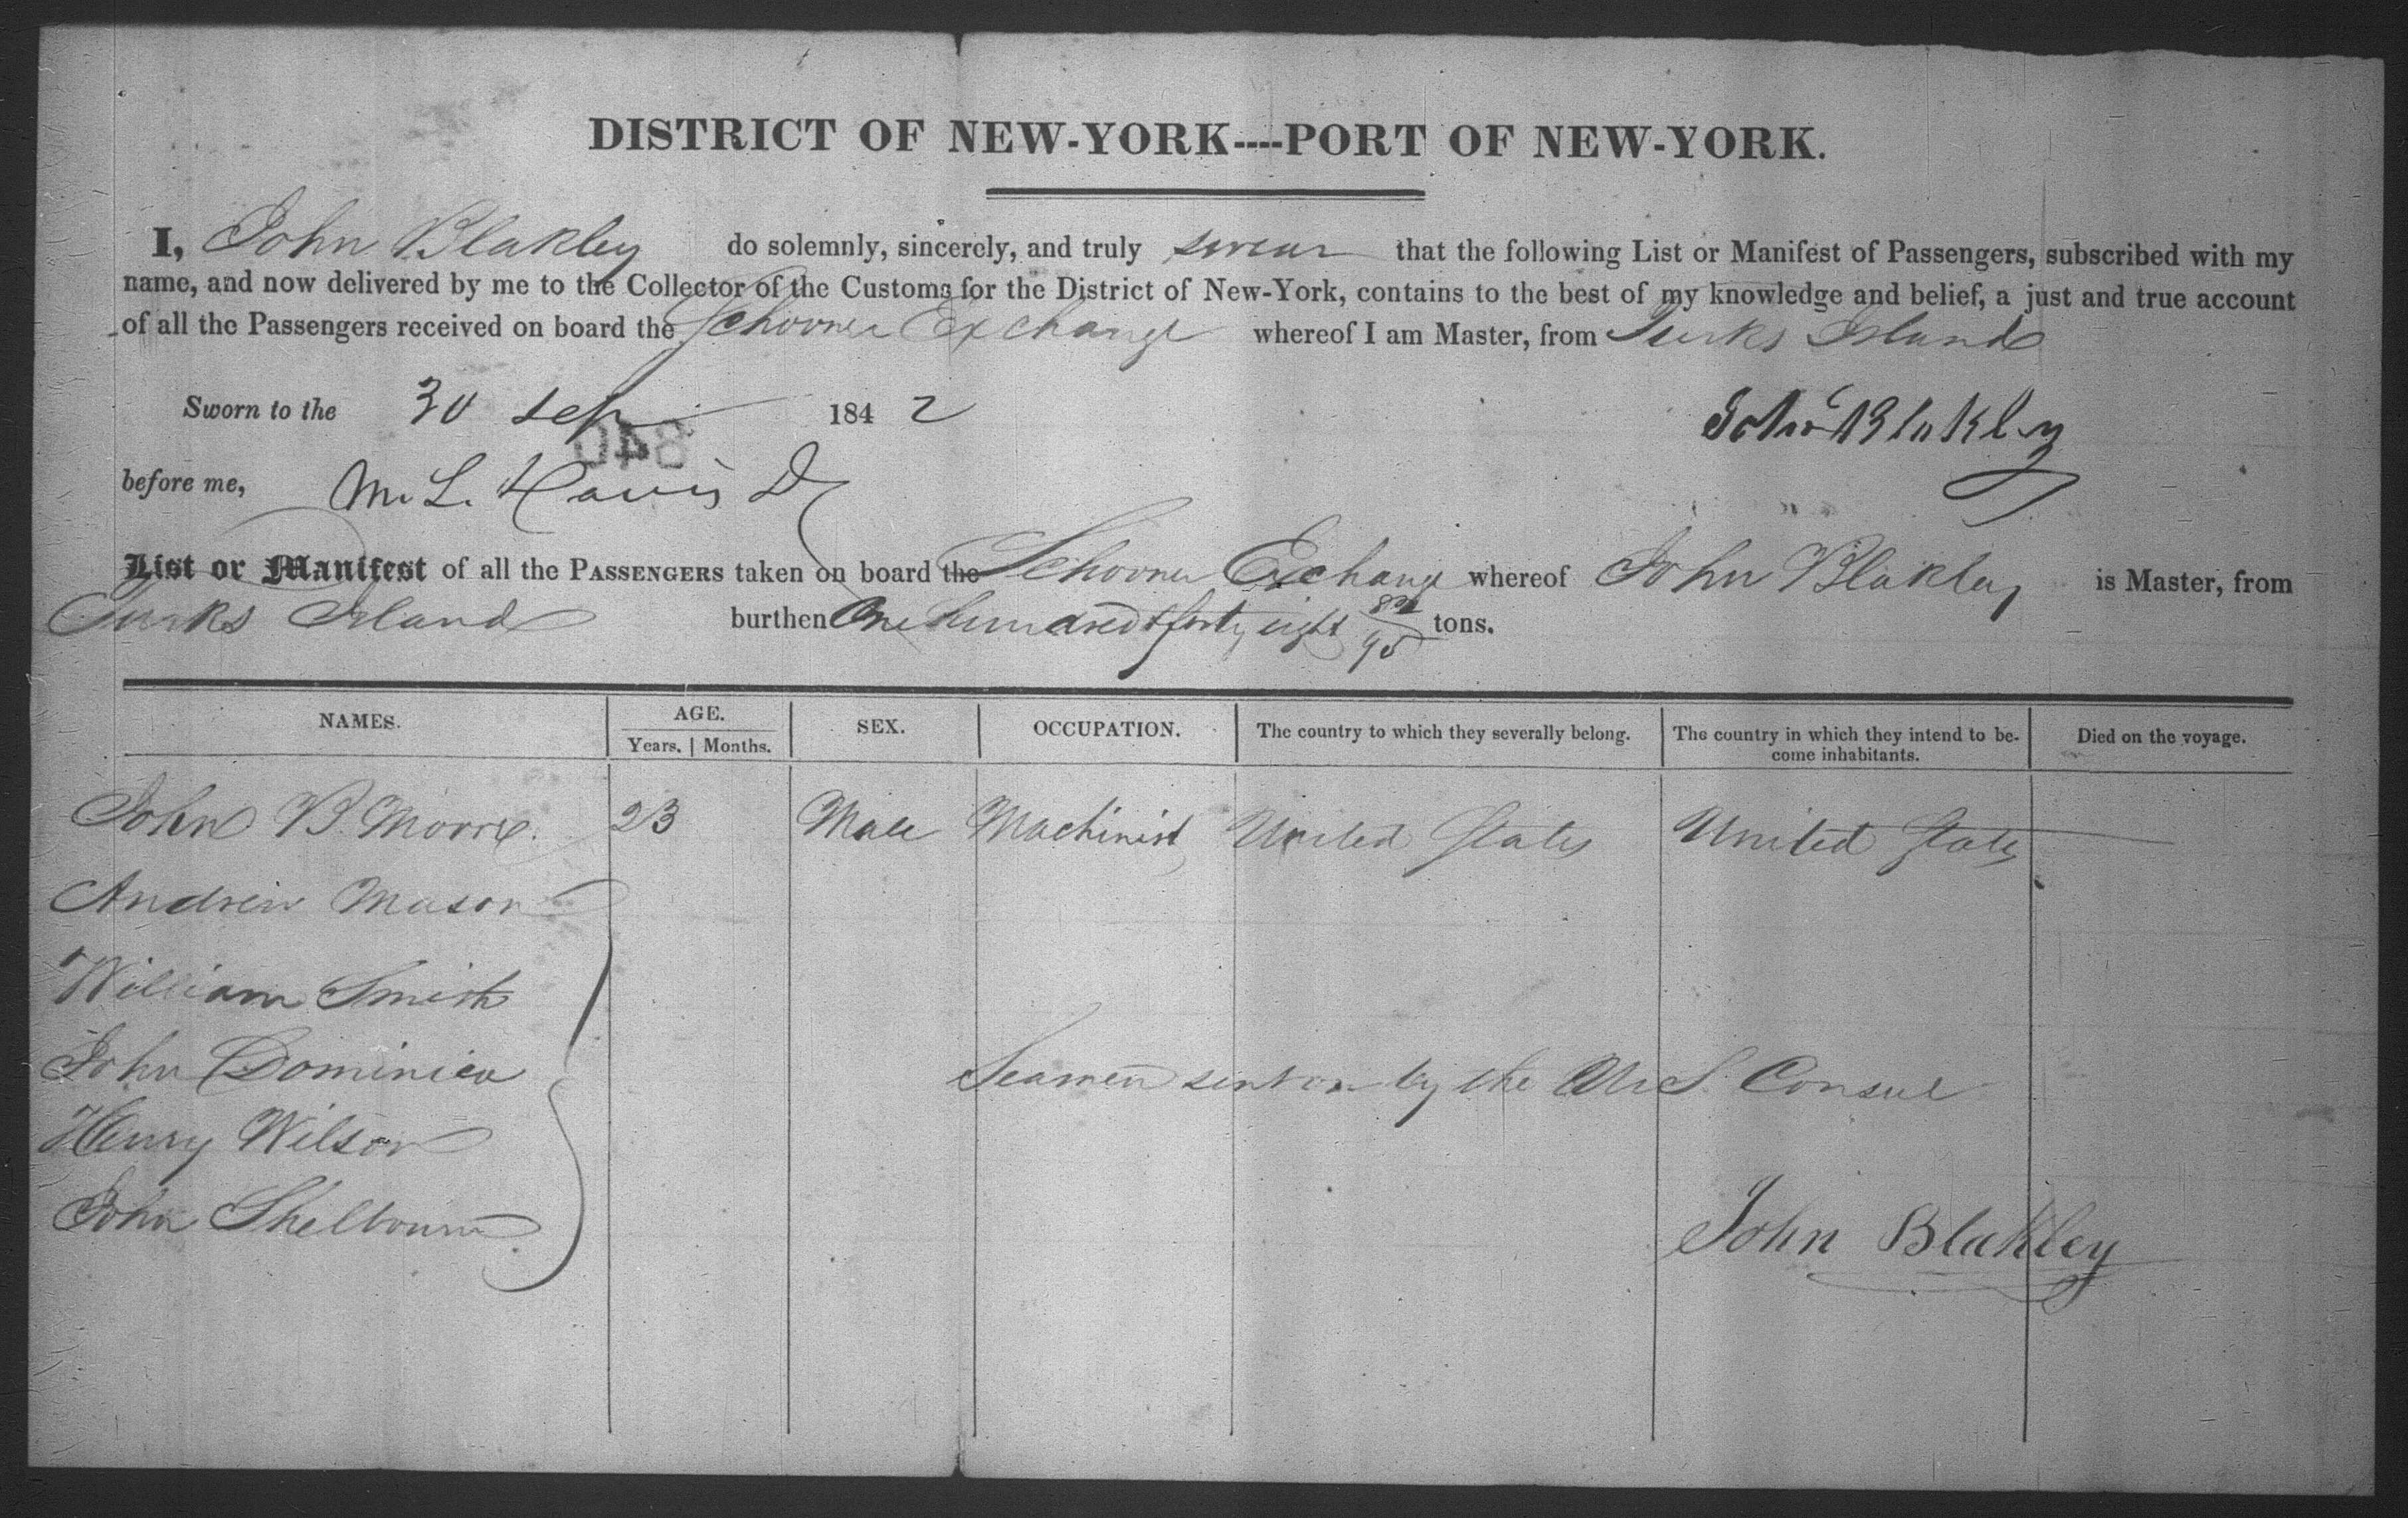 DISTRICT OF NEW-YORK----PORT OF NEW-YORK.
I, John Blakley do solemnly, sincerely, and truly swear that the following List or Manifest of Passengers, subscribed with my
name, and now delivered by me to the Collector of the Customs for the District of New-York, contains to the best of my knowledge and belief, a just and true account
of all the Passengers received on board the Schooner Exchange whereof I am Master, from Turks Island
Sworn to the 30 Sep 1842
John Blakley
840
before me, M. L. Davis
List or Manifest of all the PASSENGERS taken on board the Schooner Exchange whereof John Blakley is Master, from
Turks Island burthen One hundred & forty eight /95 tons.
NAMES. AGE. SEX. OCCUPATION. The country to which they severally belong. The country in which they intend to be- Died on the voyage.
Years. Months. come inhabitants.
John B. Moore. 23 Male Machinist United States United States
Andrew Mason
William Smith
John Dominica
Seamen sent on by the U.S. Consul
Henry Wilson
John Shelbourn
John Blakley